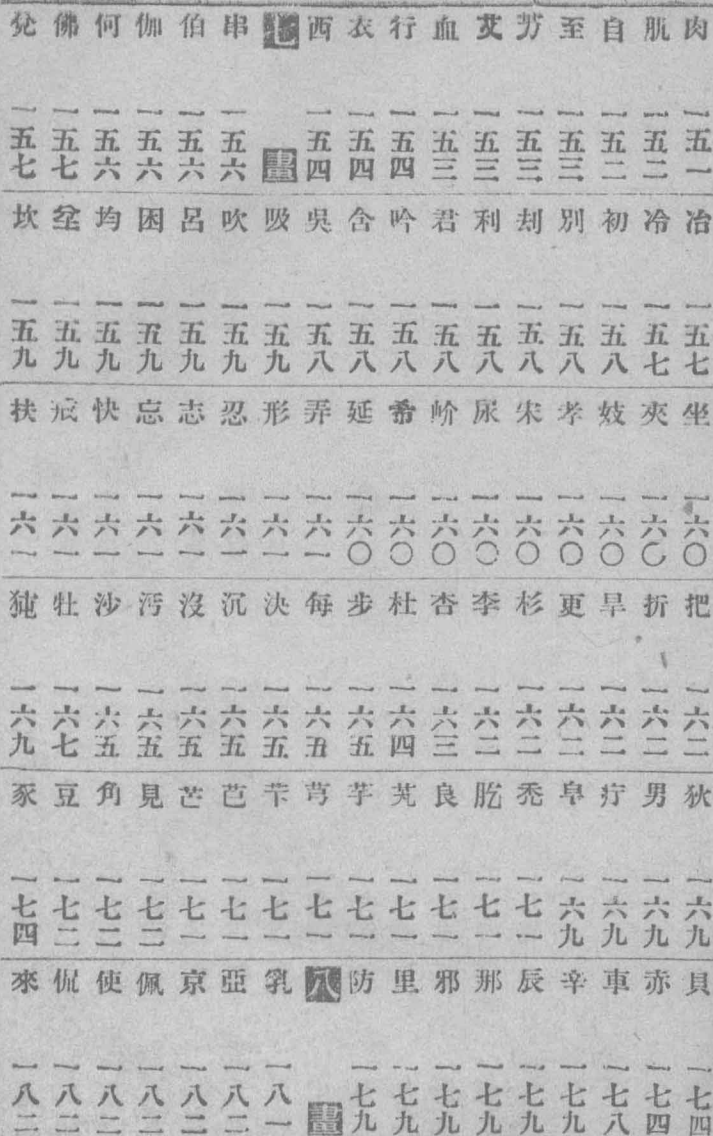 肉 一五一
肌 一五二
自 一五二
至 一五三
芳 一五三
艾 一五三
血 一五三
行 一五四
衣 一五四
西 一五四
七畫
串 一五六
伯 一五六
伽 一五六
何 一五六
佛 一五七
兌 一五七
冶 一五七
冷 一五七
初 一五八
別 一五八
刦 一五八
利 一五八
君 一五八
吟 一五八
含 一五八
吳 一五八
吸 一五九
吹 一五九
呂 一五九
困 一五九
均 一五九
坌 一五九
坎 一五九
坐 一六〇
夾 一六〇
妓 一六〇
孝 一六〇
宋 一六〇
尿 一六〇
岕 一六〇
希 一六〇
延 一六〇
弄 一六一
形 一六一
忍 一六一
志 一六一
忘 一六一
快 一六一
戒 一六一
扶 一六一
把 一六二
折 一六二
旱 一六二
更 一六二
杉 一六二
李 一六二
杏 一六三
杜 一六四
步 一六五
每 一六五
決 一六五
沉 一六五
沒 一六五
污 一六五
沙 一六五
牡 一六七
㹠 一六九
狄 一六九
男 一六九
疔 一六九
皁 一六九
禿 一七一
肐 一七一
良 一七一
芄 一七一
芋 一七一
芎 一七一
芐 一七一
芭 一七一
芒 一七一
見 一七二
角 一七二
豆 一七二
豕 一七四
貝 一七四
赤 一七四
車 一七八
辛 一七九
辰 一七九
那 一七九
邪 一七九
里 一七九
防 一七九
八畫
乳 一八一
亞 一八二
京 一八二
佩 一八二
使 一八二
侃 一八二
來 一八二